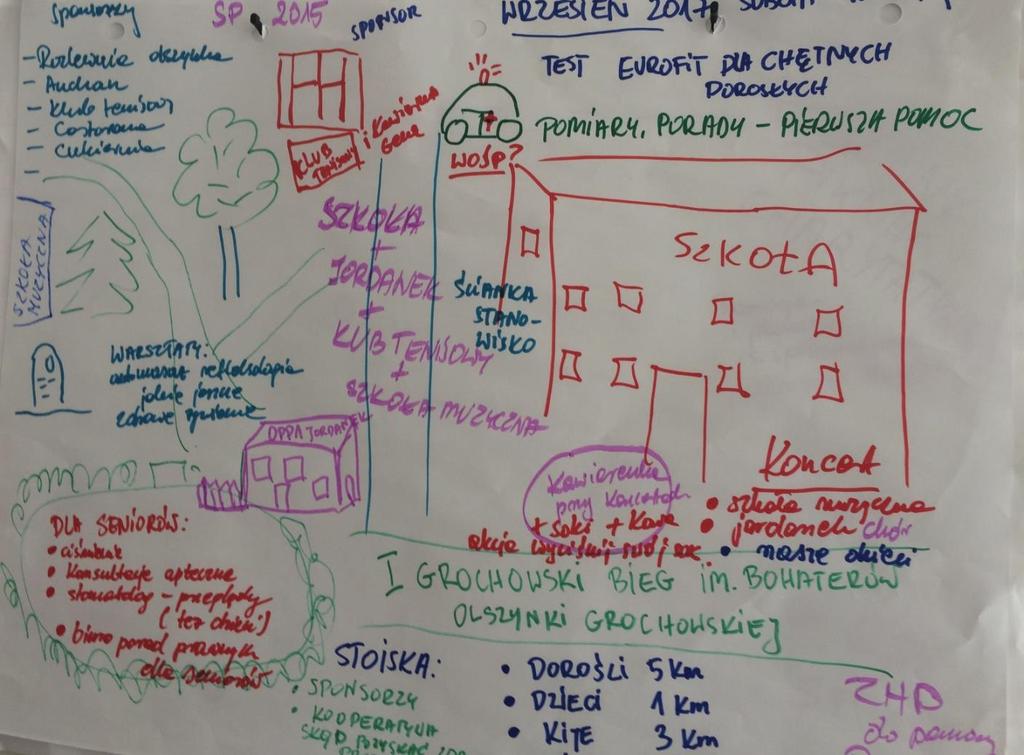 sponsorzy
- Rozlewnia olszynka
- Auchan
- Klub tenisowy
- Castorama
- cukiernia
-
SP 2015
SPONSOR
WRZESIEŃ 2017
TEST EUROFIT DLA CHĘTNYCH
DOROSŁYCH
POMIARY, PORADY - PIERWSZA POMOC
WOŚP?
KLUB
TENISOWY
i Kawiarnia
SZKOŁA
MUZYCZNA
SZKOŁA
+
JORDANEK
+
KLUB TENISOWY
+
SZKOŁA MUZYCZNA
ŚCIANKA
STANO-
WISKO
SZKOŁA
WARSZTATY:
automasaż refleksologia
zdrowe żywienie
DPPA JORDANEK
DLA SENIORÓW:
• ciśnienie
• konsultacje apteczne
• stomatolog - przeglądy
(też dzieci)
• biuro porad prawnych
dla seniorów
Kawiarenka
przy koncertach
+ soki + kawa
akcja wyciśnij swój sok
Koncert
• szkoła muzyczna
• jordanek chór
• nasze dzieci
I GROCHOWSKI BIEG IM. BOHATERÓW
OLSZYNKI GROCHOWSKIEJ
STOISKA:
• SPONSORZY
• KOOPERATYWA
SKĄD POZYSKAĆ
• DOROŚLI 5 Km
• DZIECI 1 Km
• KIJE 3 Km
ZHP
do pomocy